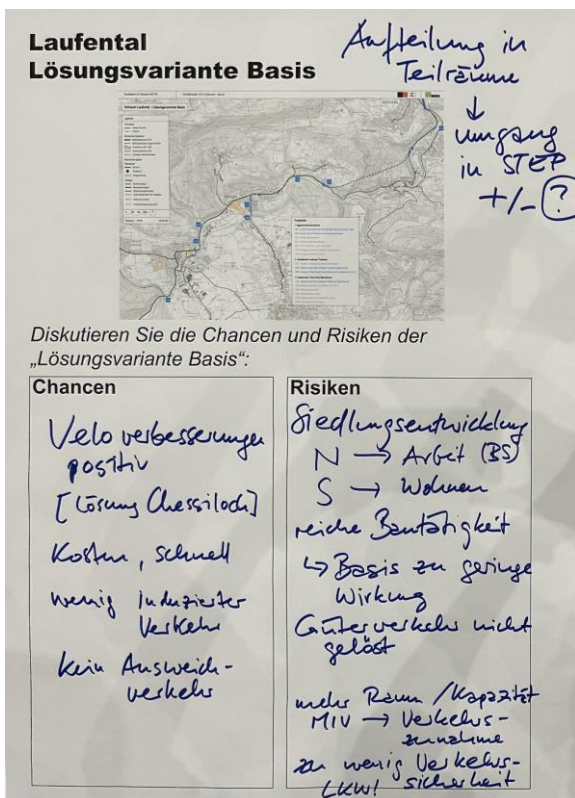 Laufental
Lösungsvariante Basis
Aufteilung in
Teilräume
↓
umgang
in STEP
+/- ?
Diskutieren Sie die Chancen und Risiken der
„Lösungsvariante Basis“:
Chancen
Veloverbesserungen
positiv
[Lösung Chessiloch]
Kosten, schnell
wenig induzierter
Verkehr
kein Ausweich-
verkehr
Risiken
Siedlungsentwicklung
N → Arbeit (BS)
S → Wohnen
reiche Bautätigkeit
↳ Basis zu geringe
Wirkung
Güterverkehr nicht
gelöst
mehr Raum / Kapazität
MIV → Verkehrs-
zunahme
zu wenig Verkehrs-
LKW! sicherheit